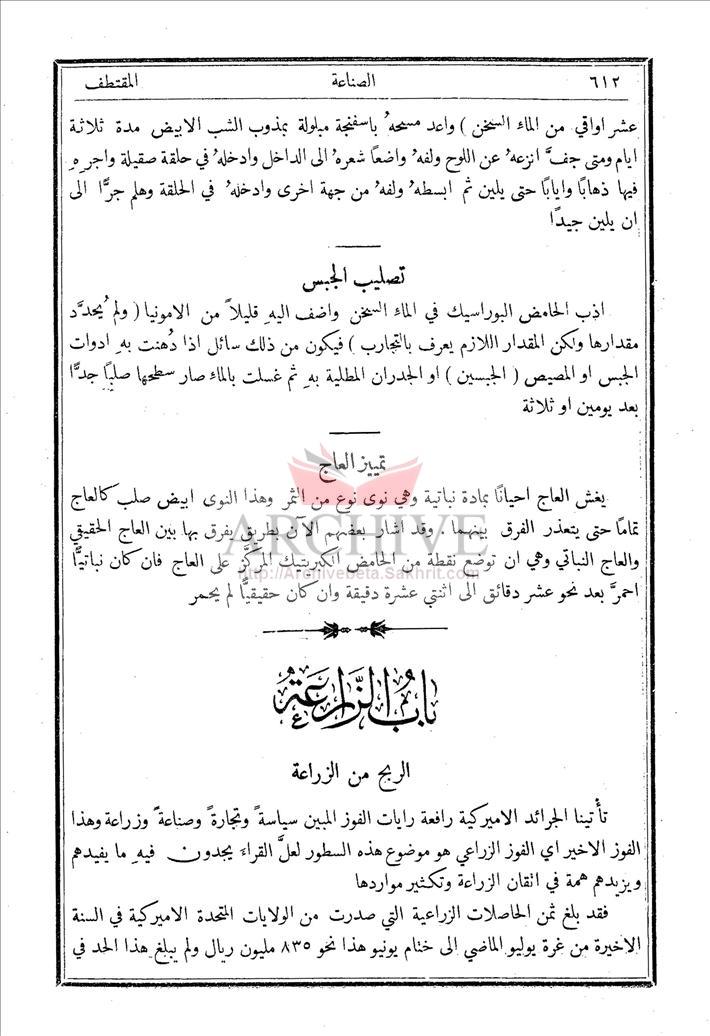 ٦١٢ الصناعة المقتطف
عشر اواقي من الماء السخن ) واعد مسحهُ باسفنجة مبلولة بمذوب الشب الابيض مدة ثلاثة
ايام ومتى جفَّ انزعهُ عن اللوح ولفهُ واضعاً شعرهُ الى الداخل وادخلهُ في حلقة صقيلة واجرِهِ
فيها ذهابًا وايابًا حتى يلين ثم ابسطهُ ولفهُ من جهة اخرى وادخلهُ في الحلقة وهلم جرًّا الى
ان يلين جيدًا
تصليب الجبس
اذِب الحامض البوراسيك في الماء السخن واضف اليهِ قليلاً من الامونيا ( ولم يُحدَّد
مقدارها ولكن المقدار اللازم يعرف بالتجارب ) فيكون من ذلك سائل اذا دُهنت بهِ ادوات
الجبس او المصيص ( الجبسين ) او الجدران المطلية بهِ ثم غسلت بالماء صار سطحها صلبًا جدًّا
بعد يومين او ثلاثة
تمييز العاج
يغش العاج احيانًا بمادة نباتية وهي نوى نوع من الثمر وهذا النوى ابيض صلب كالعاج
تمامًا حتى يتعذر الفرق بينهما . وقد اشار بعضهم الآن بطريق يفرق بها بين العاج الحقيقي
والعاج النباتي وهي ان توضع نقطة من الحامض الكبريتيك المركَّز على العاج فان كان نباتيًّا
احمرَّ بعد نحو عشر دقائق الى اثنتي عشرة دقيقة وان كان حقيقيًّا لم يحمر
ARCHIVE
http://Archivebeta.Sakhrit.com
باب الزراعة
الربح من الزراعة
تأتينا الجرائد الاميركية رافعة رايات الفوز المبين سياسةً وتجارةً وصناعةً وزراعة وهذا
الفوز الاخير اي الفوز الزراعي هو موضوع هذه السطور لعلَّ القراء يجدون فيهِ ما يفيدهم
ويزيدهم همة في اتقان الزراعة وتكثير مواردها
فقد بلغ ثمن الحاصلات الزراعية التي صدرت من الولايات المتحدة الاميركية في السنة
الاخيرة من غرة يوليو الماضي الى ختام يونيو هذا نحو ٨٣٥ مليون ريال ولم يبلغ هذا الحد في